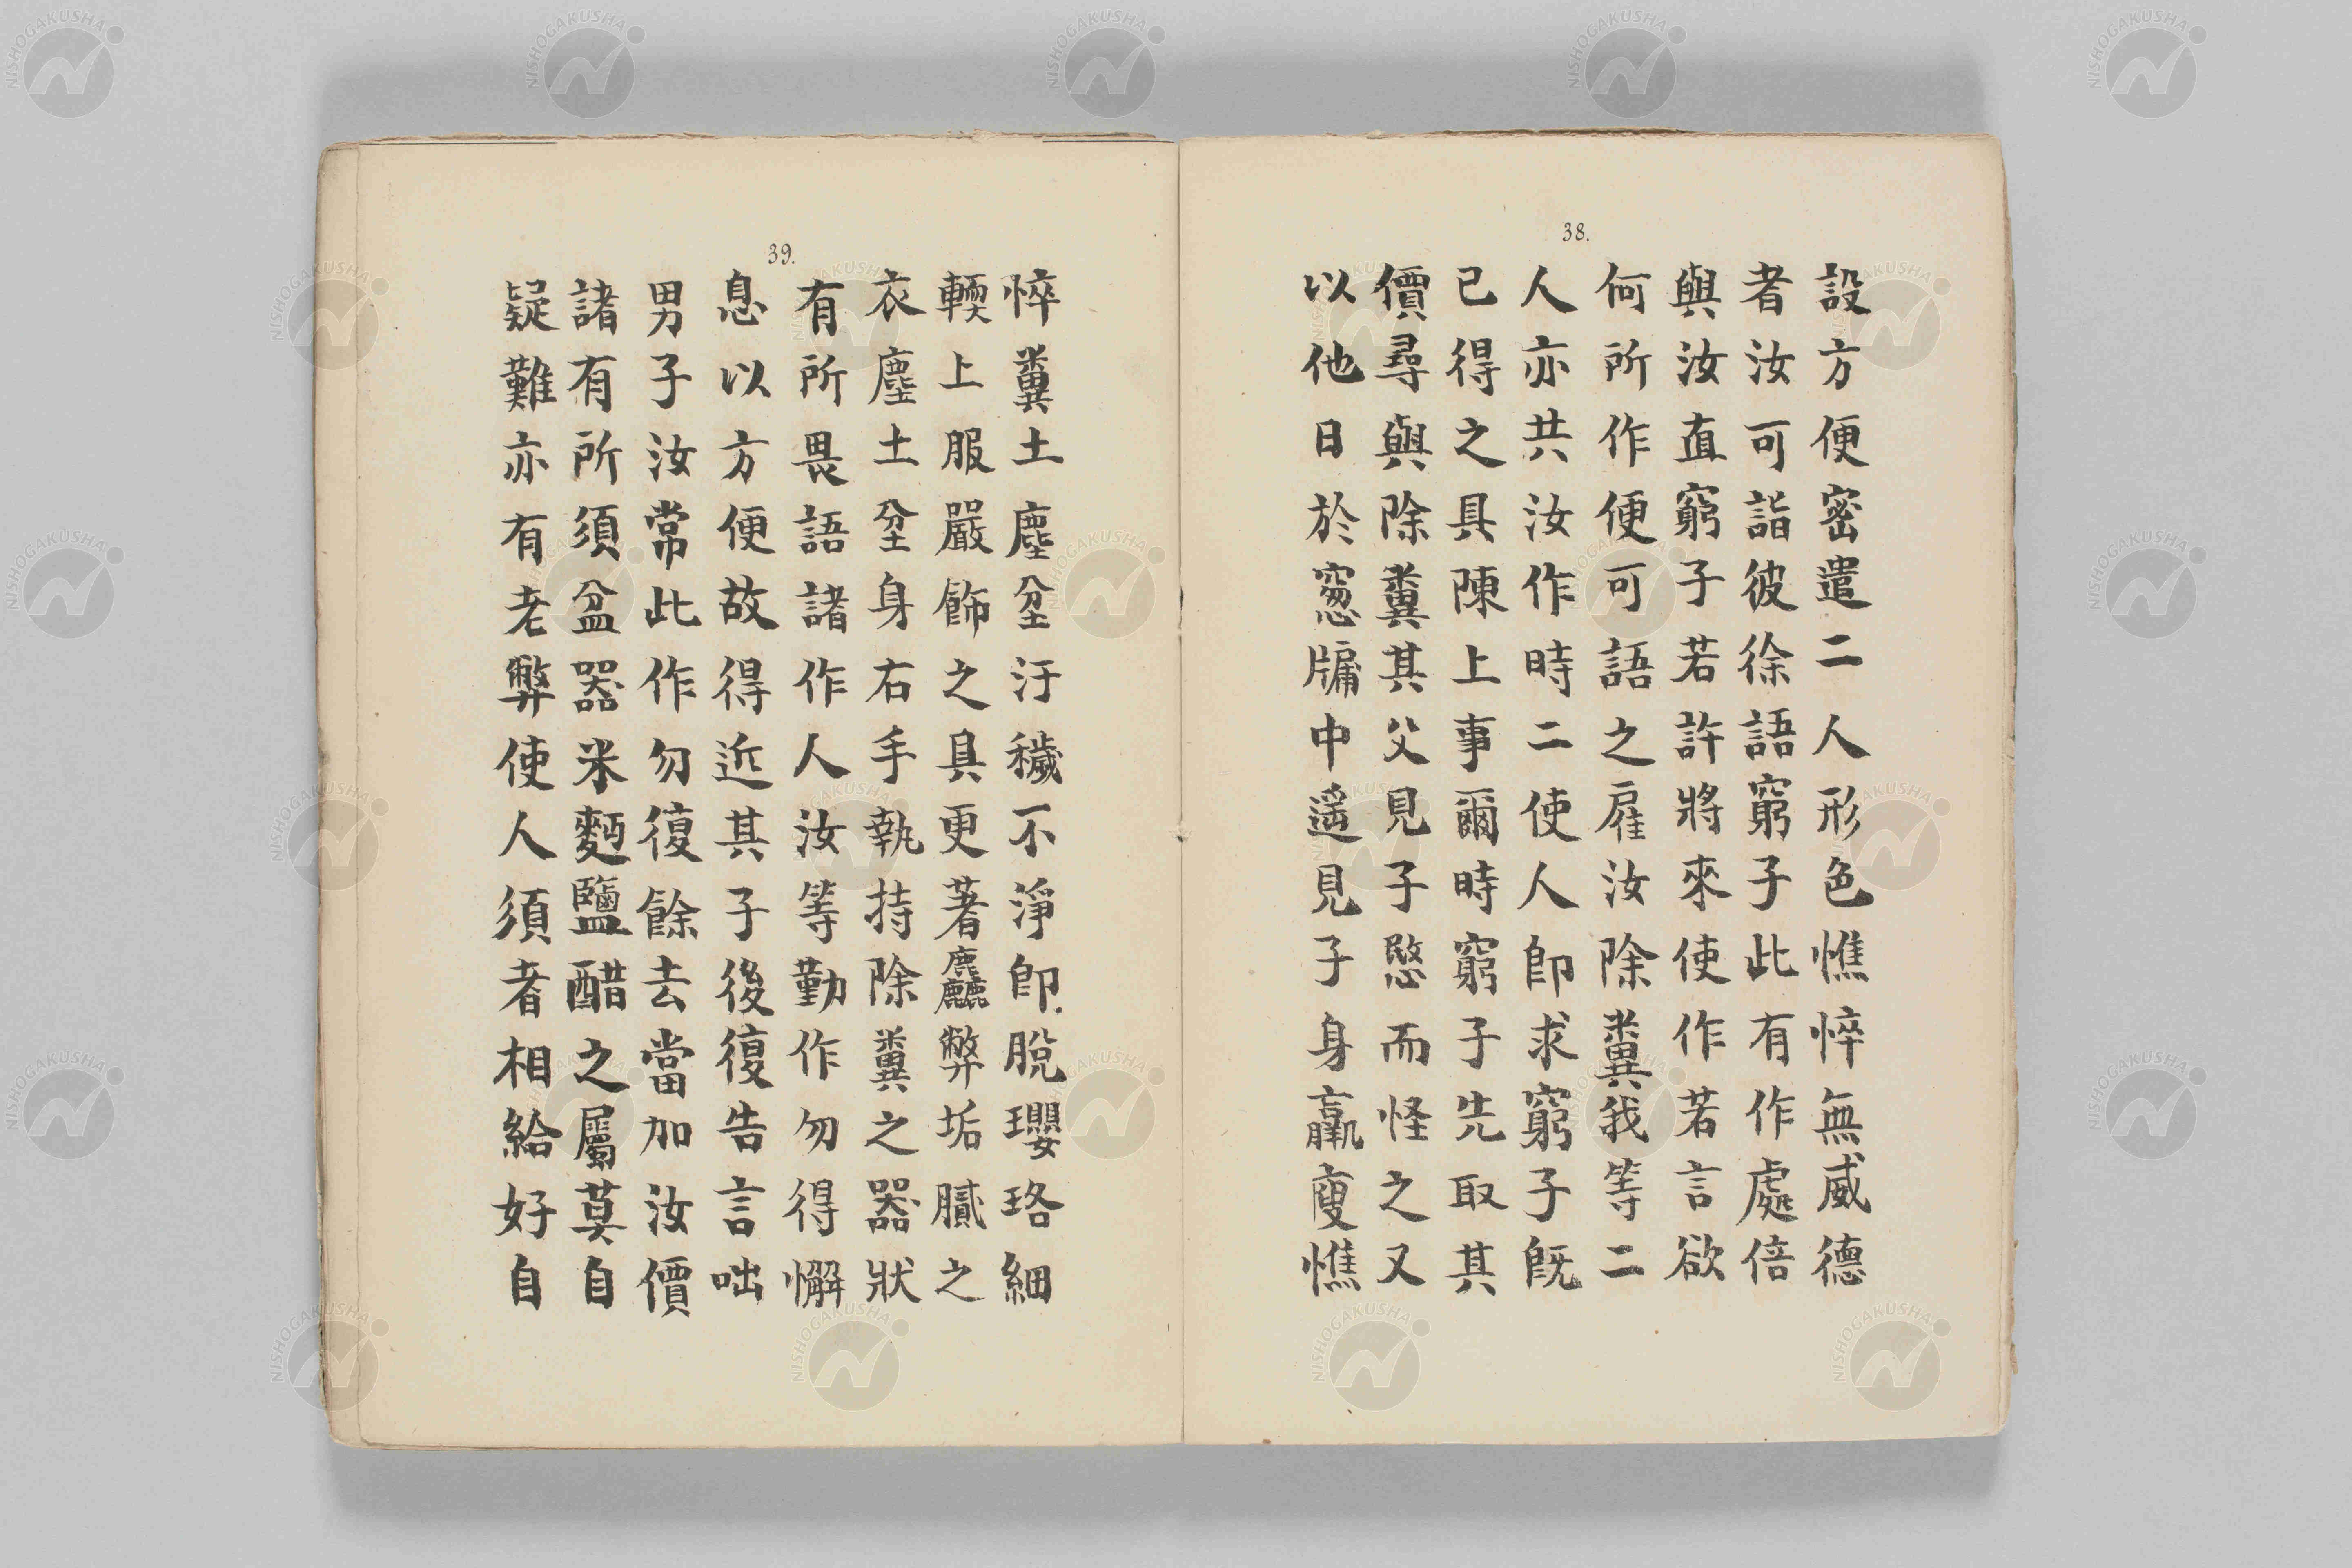 38.
設方便密遣二人形色憔悴無威德
者汝可詣彼徐語窮子此有作處倍
與汝直窮子若許將來使作若言欲
何所作便可語之雇汝除糞我等二
人亦共汝作時二使人即求窮子既
已得之具陳上事爾時窮子先取其
價尋與除糞其父見子愍而怪之又
以他日於窓牖中遥見子身羸瘦憔
39.
悴糞土塵坌汙穢不淨即脫瓔珞細
輭上服嚴飾之具更著麤弊垢膩之
衣塵土坌身右手執持除糞之器狀
有所畏語諸作人汝等勤作勿得懈
息以方便故得近其子後復告言咄
男子汝常此作勿復餘去當加汝價
諸有所須盆器米麪鹽醋之屬莫自
疑難亦有老弊使人須者相給好自
NISHOGAKUSHA